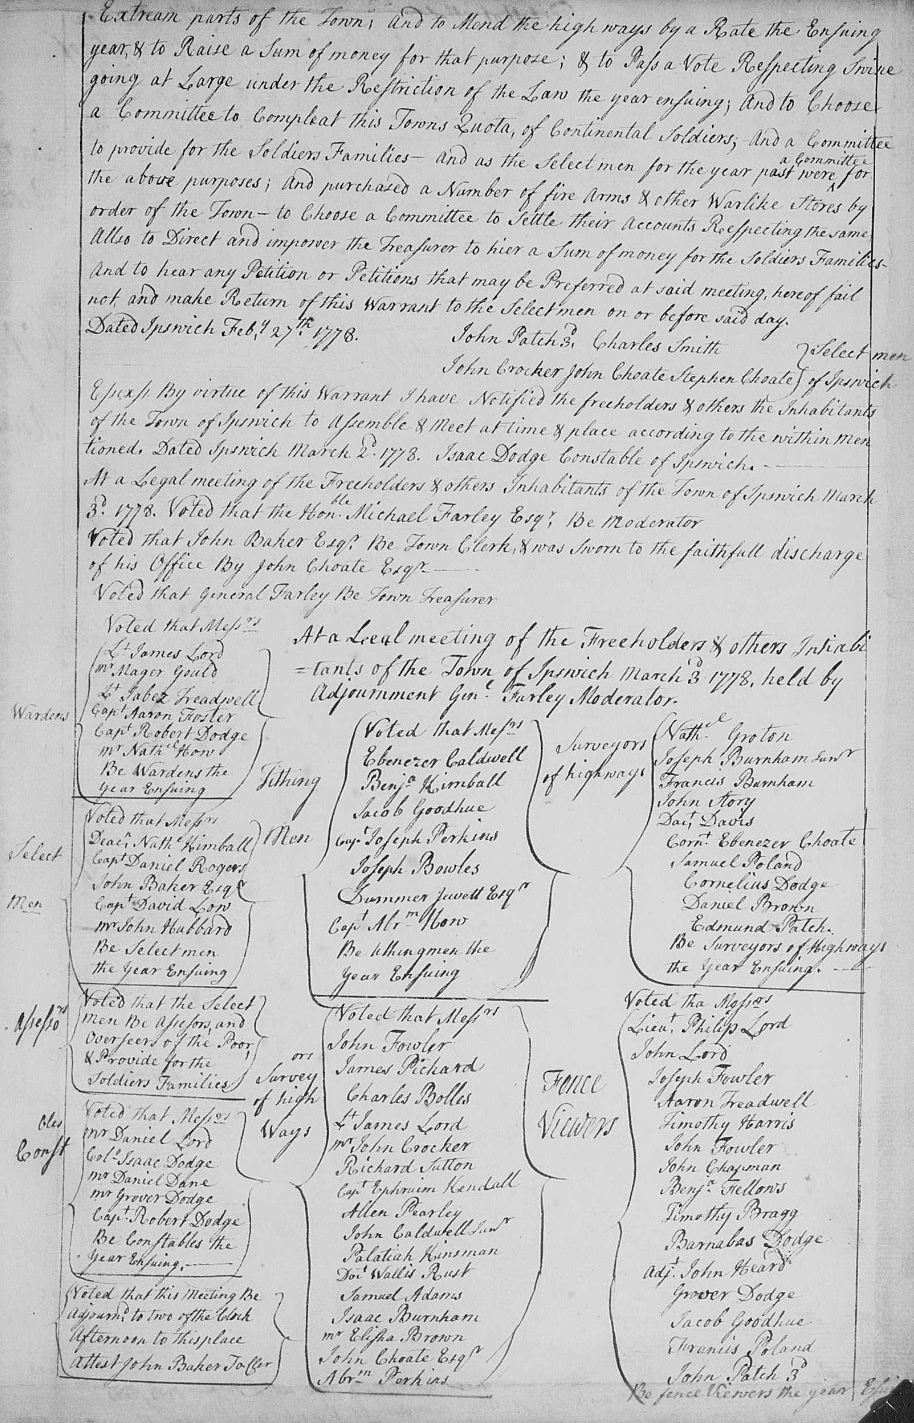 Extream parts of the Town; And to Mend the high ways by a Rate the Ensuing
year, & to Raise a Sum of money for that purpose; & to Pass a Vote Respecting Swine
going at Large under the Restriction of the Law the year ensuing; And to Choose
a Committee to Compleat this Towns Quota, of Continental Soldiers; And a Committee
to provide for the Soldiers Families— And as the Select men for the year past were a Committee for
the above purposes; And purchased a Number of fire Arms & other Warlike Stores by
order of the Town— to Choose a Committee to Settle their Accounts Respecting the same
Allso to Direct and impower the Treasurer to hier a Sum of money for the Soldiers Families-
And to hear any Petition or Petitions that may be Preferred at said meeting, hereof fail
not, and make Return of this Warrant to the Select men on or before said day.
Dated Ipswich Feb.y 27th. 1778.
John Patch 3d, Charles Smith
John Crocker John Choate Stephen Choate
Select men
of Ipswich
Essex ss By virtue of this Warrant I have Notified the freeholders & others the Inhabitants
of the Town of Ipswich to Assemble & Meet at time & place according to the within men
tioned. Dated Ipswich March 2d. 1778. Isaac Dodge Constable of Ipswich.
At a Legal meeting of the Freeholders & others Inhabitants of the Town of Ipswich March
3d. 1778. Voted that the Honble. Michael Farley Esqr. Be Moderator
Voted that John Baker Esqr. Be Town Clerk, & was Sworn to the faithfull discharge
of his Office By John Choate Esqr.
Voted that General Farley Be Town Treasurer
At a Legal meeting of the Freeholders & others Inhabi
=tants of the Town of Ipswich March 3d 1778, held by
Adjournment Genl Farley Moderator.
Wardens
Voted that Messrs
Lt James Lord
mr Mager Gould
Lt Jabez Treadwell
Capt Aaron Foster
Capt Robert Dodge
mr Nathl How
Be Wardens the
Year Ensuing
Select
Men
Voted that Messrs
Deacn. Nathl Kimball
Capt Daniel Rogers
John Baker Esqr
Capt David Low
mr John Hubbard
Be Select men
the Year Ensuing
Assessors
Voted that the Select
men Be Assesors, and
Overseers of the Poor,
& Provide for the
Soldiers Families
Constbles
Voted that Messrs
mr Daniel Lord
Colo Isaac Dodge
mr Daniel Dane
mr Grover Dodge
Capt. Robert Dodge
Be Constables the
Year Ensuing.
Voted that this Meeting Be
Adjournd. to two of the Clock
Afternoon to this place
Attest John Baker To. Cler
Tithing
Men
Voted that Messrs
Ebenezer Caldwell
Benja Kimball
Jacob Goodhue
Capt Joseph Perkins
Joseph Bowles
Dummer Jewett Esqr
Capt Abrm How
Be tithingmen the
Year Ensuing
Surveyors
of high
Ways
Voted that Messrs
John Fowler
James Pickard
Charles Bolles
Lt James Lord
mr John Crocker
Richard Sutton
Capt Ephraim Kendall
Allen Pearley
John Caldwell Junr
Palatiah Kinsman
Doct Wallis Rust
Samuel Adams
Isaac Burnham
mr Elisha Brown
John Choate Esqr
Abrm Perkins
Surveyors
of highways
Nathel Groton
Joseph Burnham Junr
Francis Burnham
John Story
Davis
Cornt. Ebenezer Choate
Samuel Poland
Cornelius Dodge
Daniel Brown
Edmund Patch.
Be Surveyors of Highways
the Year Ensuing.
Fence
Viewers
Voted tha Messrs
Lieut. Philip Lord
John Lord
Joseph Fowler
Aaron Treadwell
Timothy Harris
John Fowler
John Chapman
Benja. Fellows
Timothy Bragg
Barnabas Dodge
Adjt. John Heard
Grover Dodge
Jacob Goodhue
Francis Poland
John Patch 3d
Be fence Viewers the year